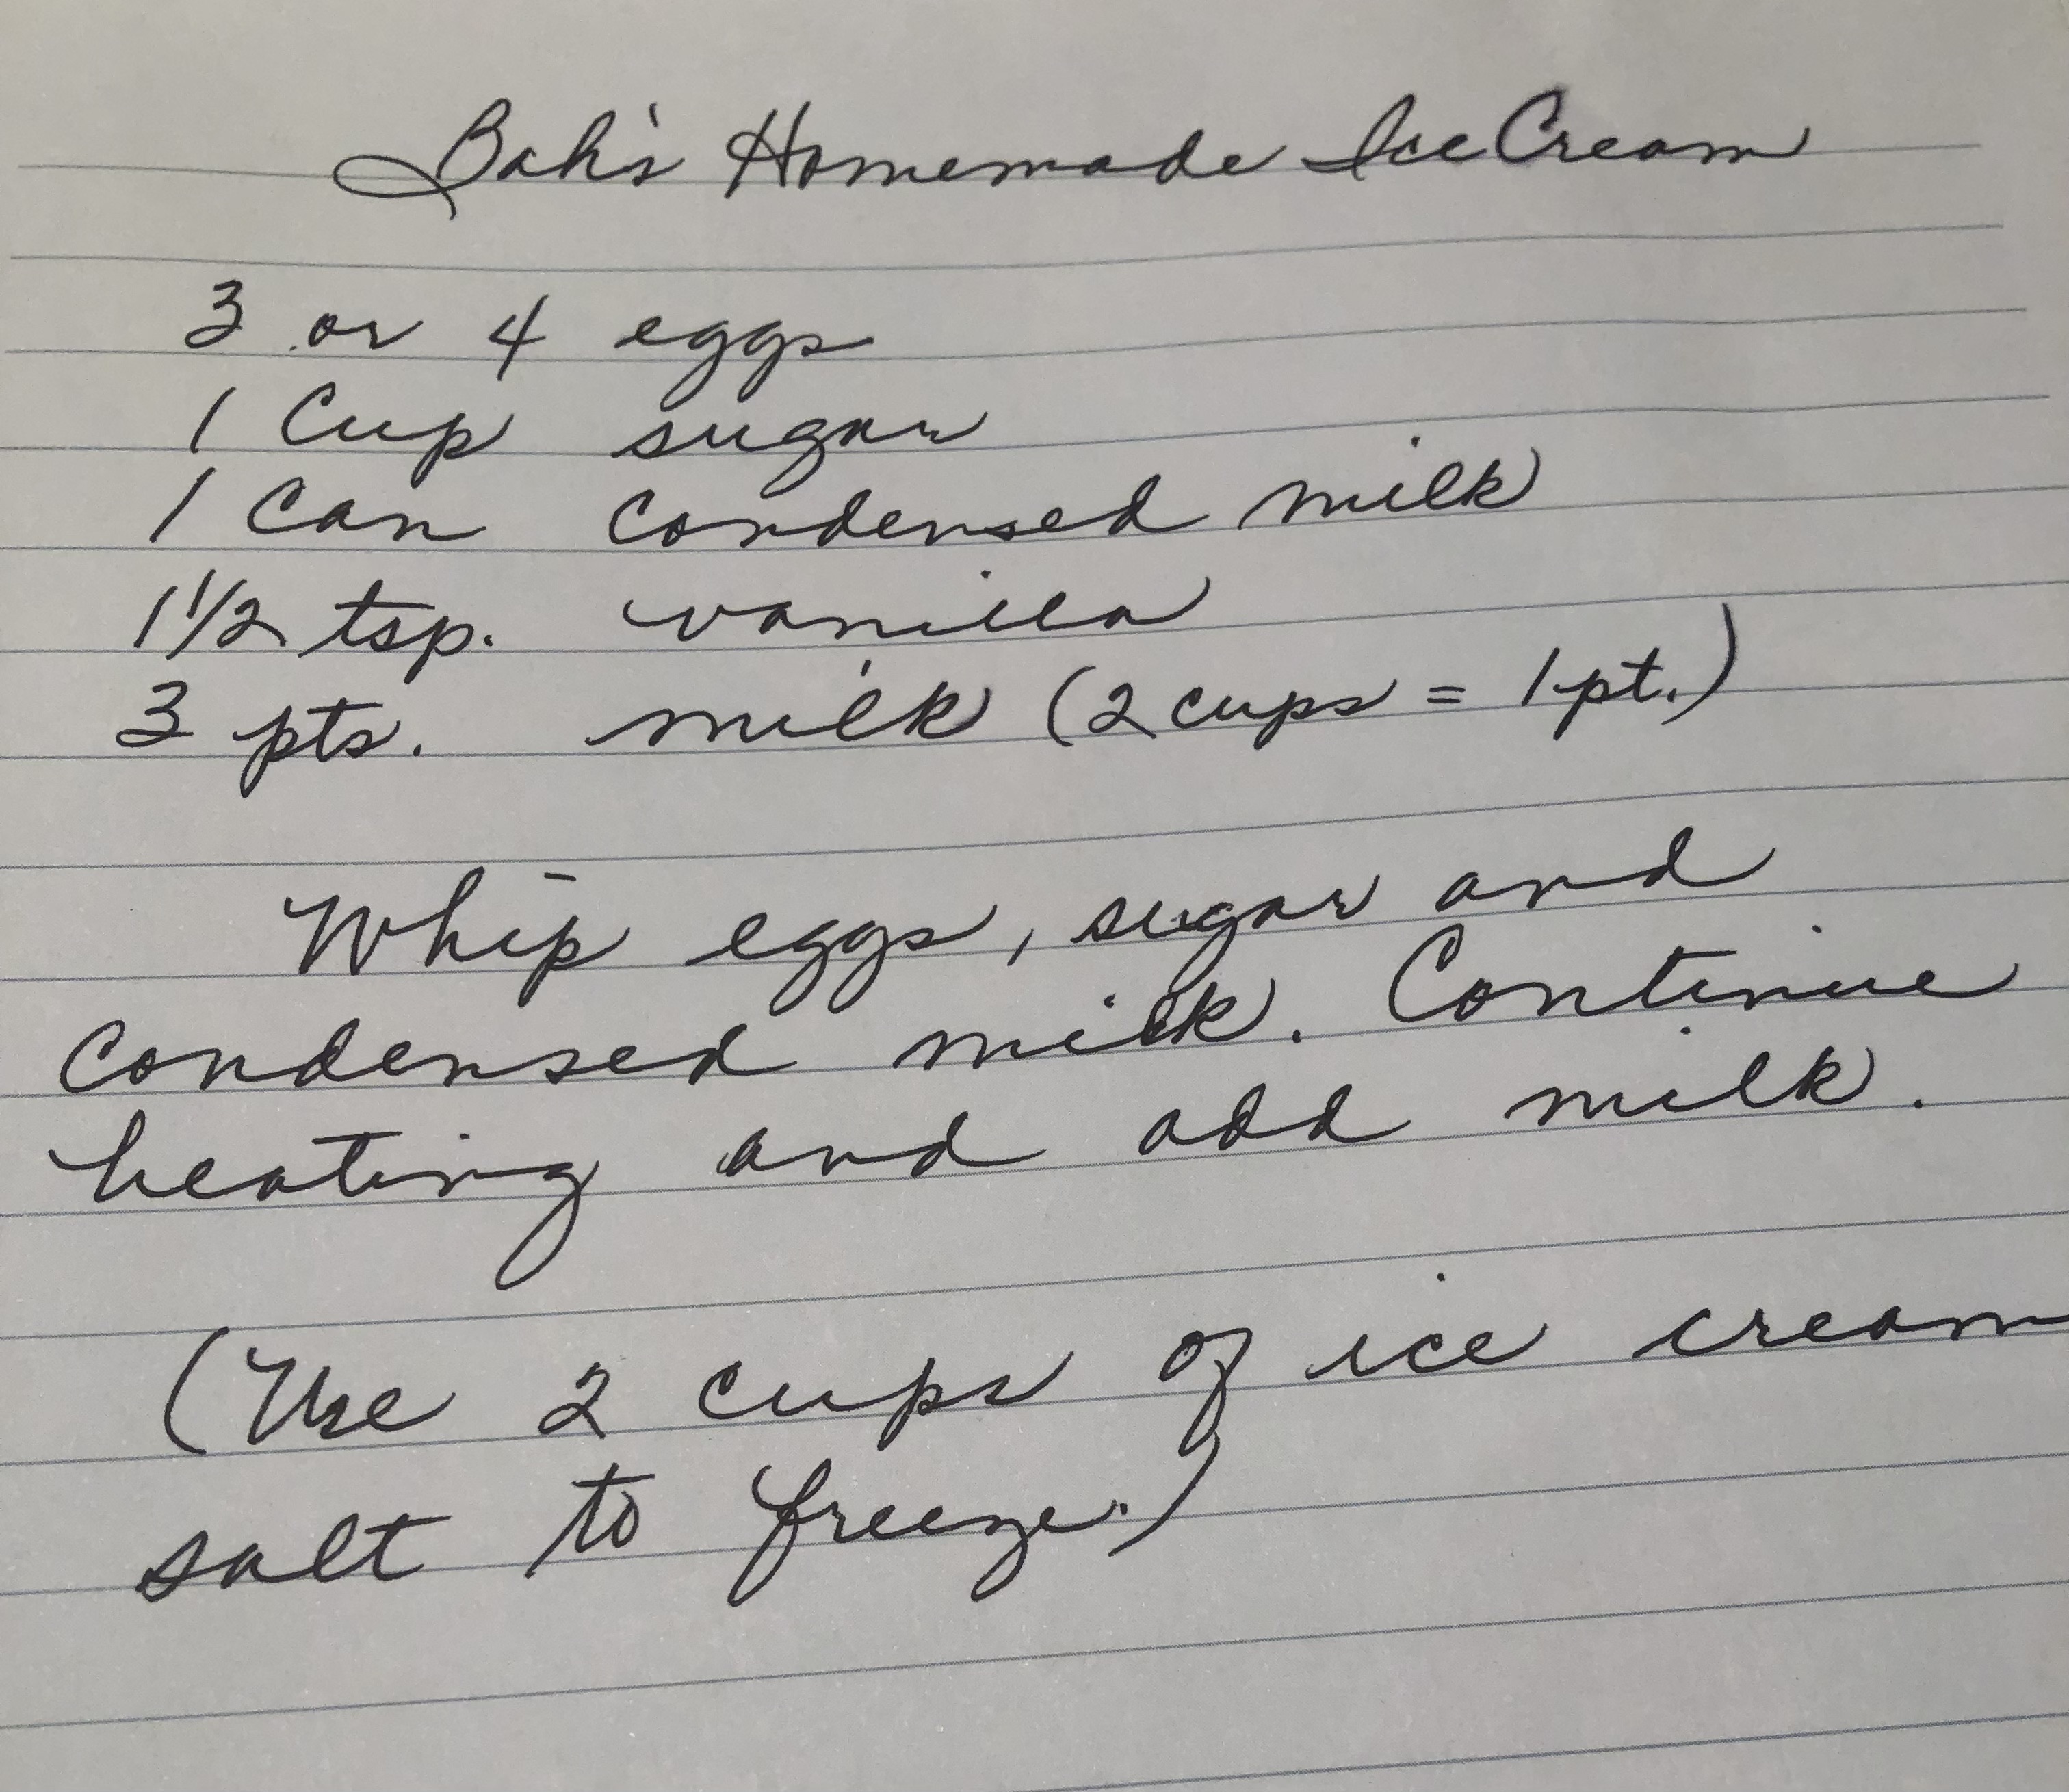 Bah's Homemade Ice Cream
3 or 4 eggs
1 Cup sugar
1 Can condensed milk
1 1/2 tsp. vanilla
3 pts. milk (2 cups = 1 pt.)
Whip eggs, sugar and
condensed milk. Continue
heating and add milk.
(Use 2 cups of ice cream
salt to freeze.)